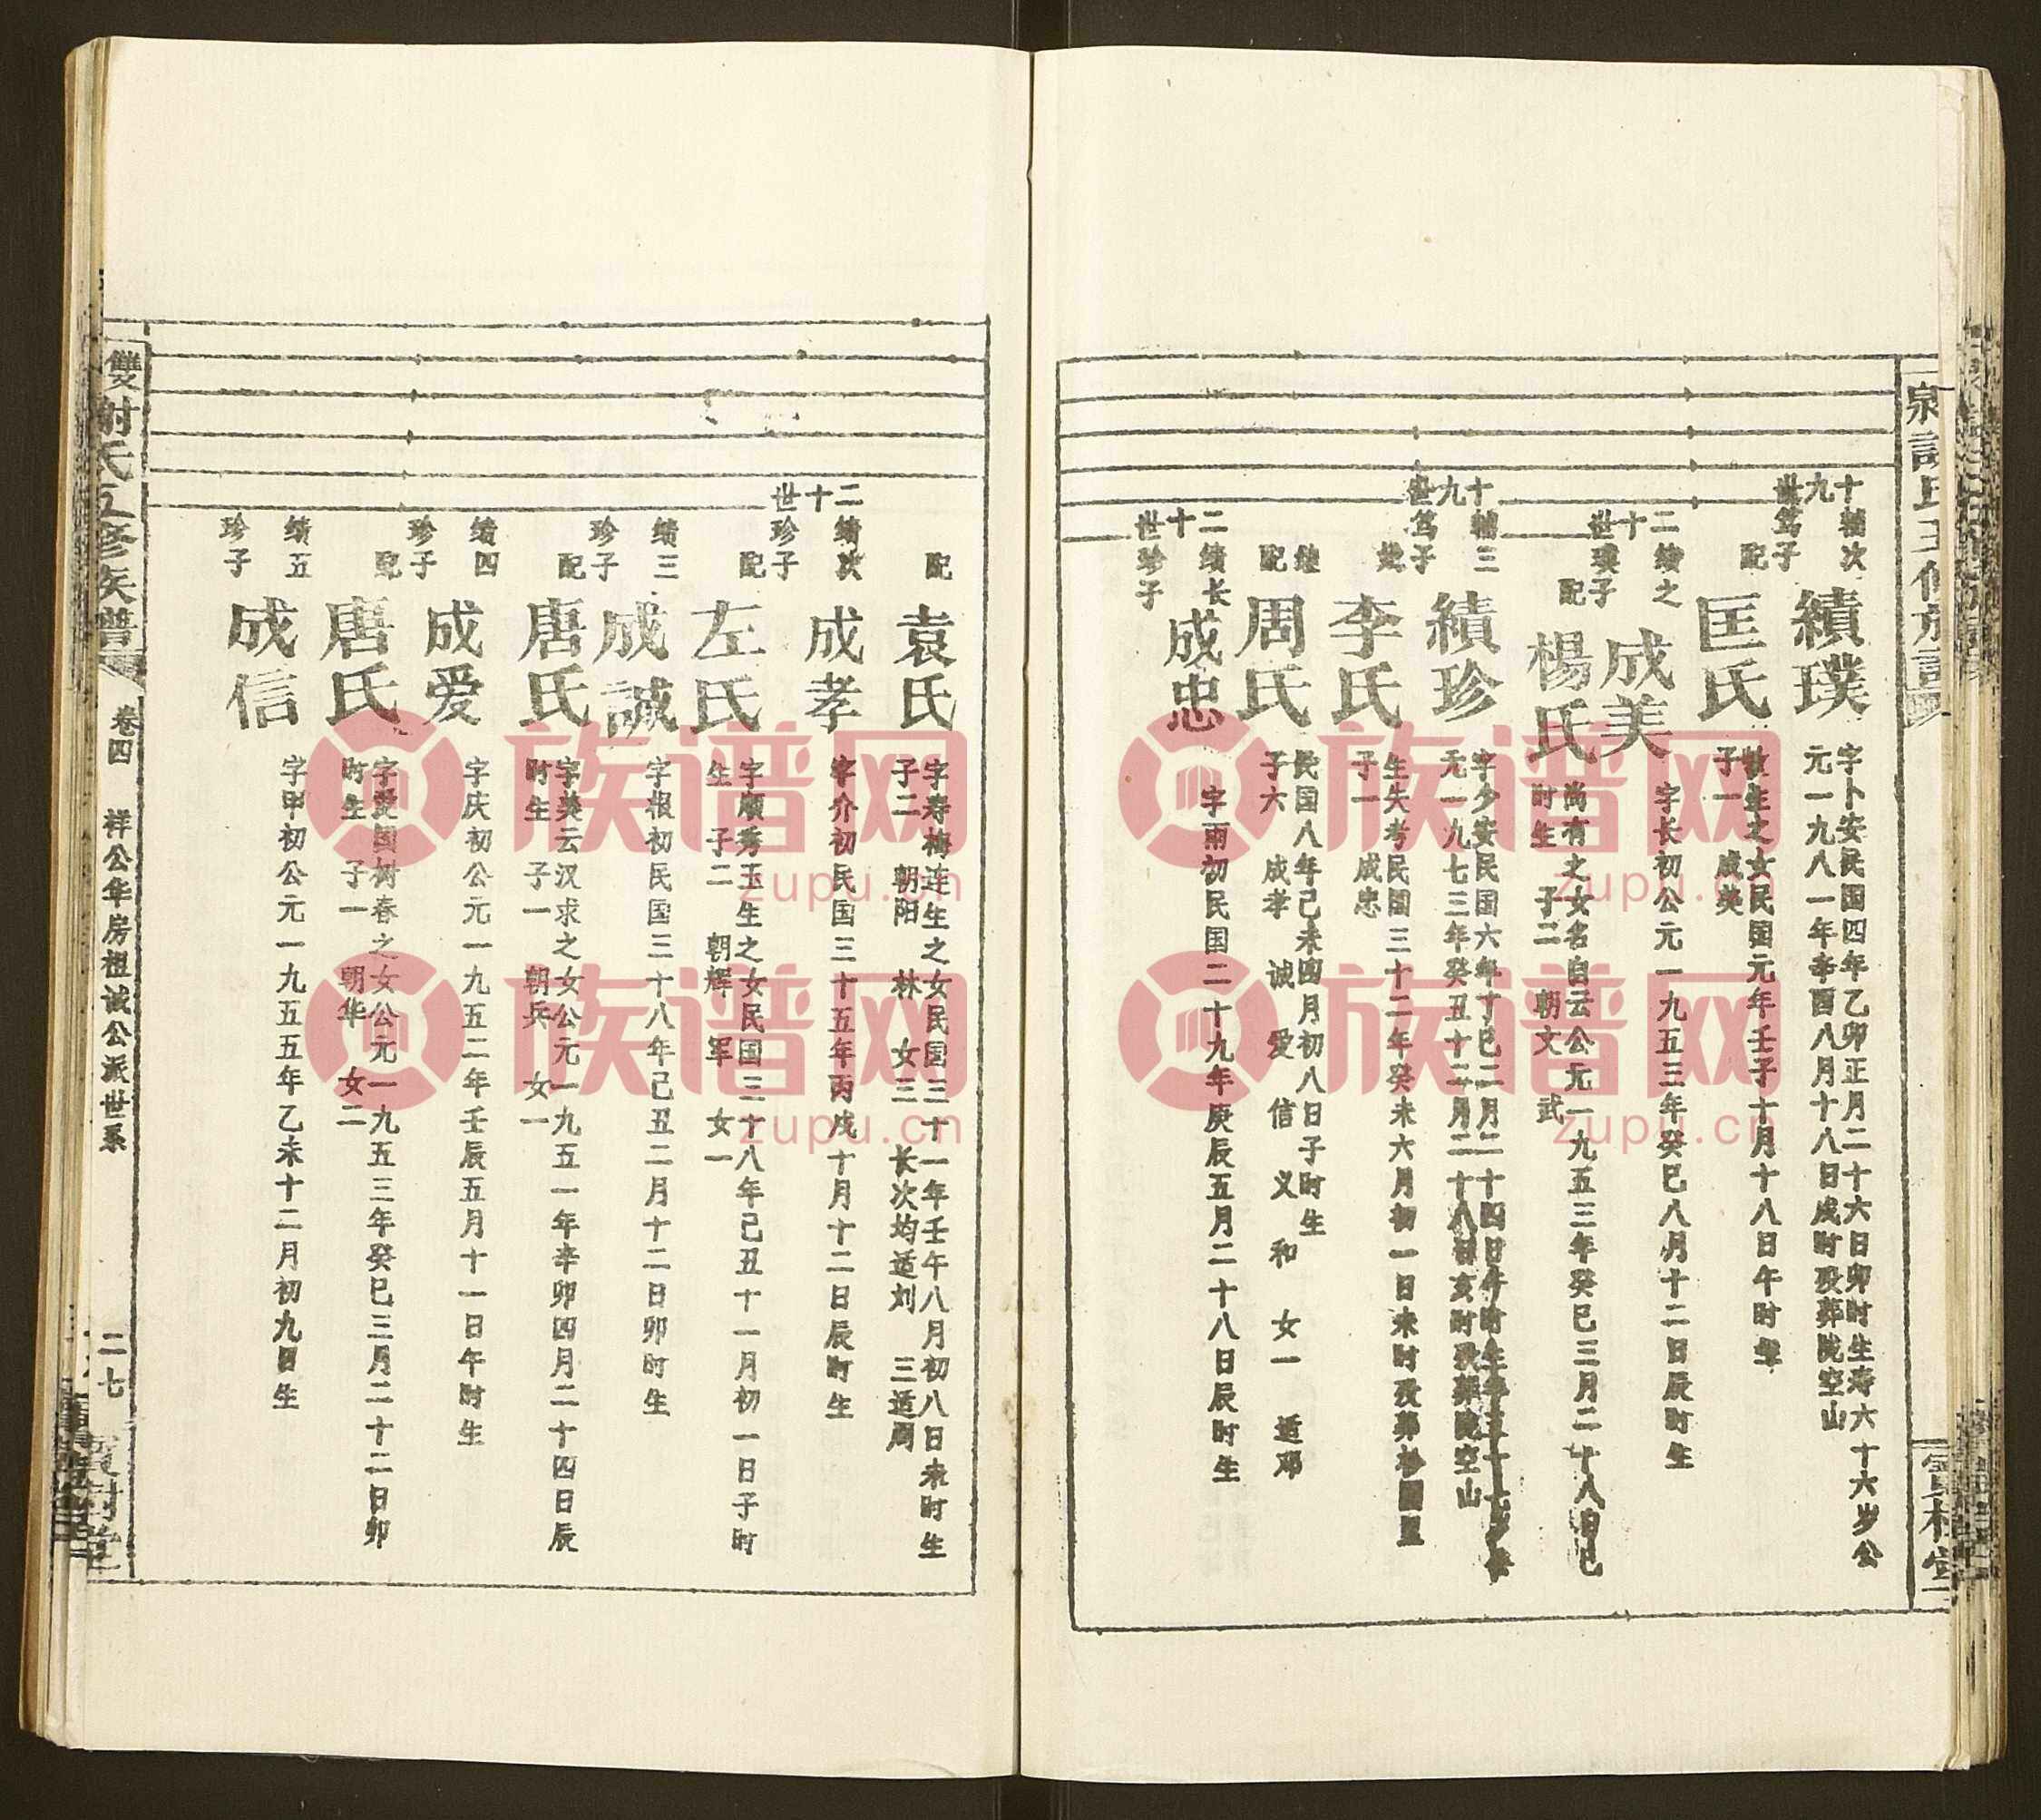 十九世
辅次
笃子
績璞
字卜安民国四年乙卯正月二十六日卯时生寿六十六岁公
元一九八一年辛酉八月十八日戌时殁葬陇空山
配
匡氏
生之女民国元年壬子十月十八日午时
子一 成美
二十世
绩之
璞子
成美
字长初公元一九五三年癸巳八月十二日辰时生
配
楊氏
尚有之女名自云公元一九五三年癸巳三月二十八日巳
时生 子二 朝文 武
十九世
辅三
笃子
績珍
字少安民国六年丁巳二月二十四日午时生寿五十七岁
元一九七三年癸丑十二月二十八日亥时殁葬陇空山
李氏
生失考民国三十二年癸未六月初一日未时殁葬
子一 成忠
继配
周氏
民国八年己未四月初八日子时生
子六 成孝 诚 爱 信 义 和 女一 适邓
二十世
绩长
珍子
成忠
字雨初民国二十九年庚辰五月二十八日辰时生
配
袁氏
字寿梅连生之女民国三十一年壬午八月初八日未时生
子二 朝阳 林 女三 长次均适刘 三适周
二十世
绩次
珍子
成孝
字介初民国三十五年丙戌十月十二日辰时生
配
左氏
字顺秀玉生之女民国三十八年己丑十一月初一日子时
生 子二 朝辉 军 女一
绩三
珍子
成誠
字根初民国三十八年己丑二月十二日卯时生
配
唐氏
字美云汉求之女公元一九五一年辛卯四月二十四日辰
时生 子一 朝兵 女一
绩四
珍子
成爱
字庆初公元一九五二年壬辰五月十一日午时生
配
唐氏
字爱国树春之女公元一九五三年癸巳三月二十二日卯
时生 子一 朝华 女二
绩五
珍子
成信
字甲初公元一九五五年乙未十二月初九日生
雙 謝氏五修族譜 卷四 祥公华房祖诚公派世系 二七 寶樹堂
族谱网
zupu.cn
族谱网
zupu.cn
族谱网
zupu.cn
族谱网
zupu.cn